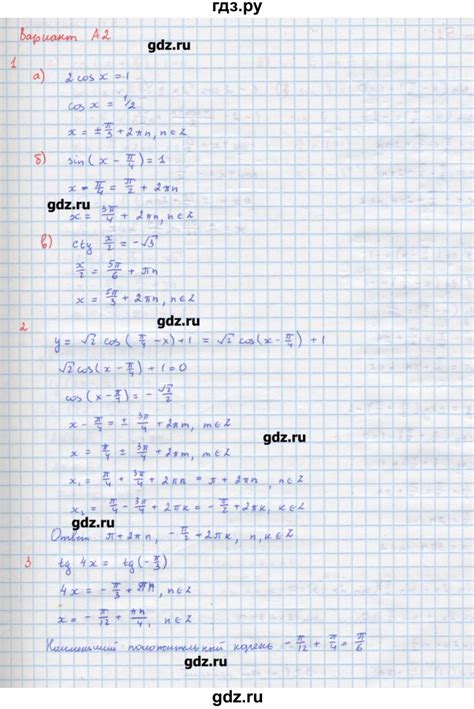 гдз.ру
Вариант А2
gdz.ru
1
а) 2 cos x = 1
cos x = 1/2
gdz.ru
x = ± π/3 + 2πn, n∈Z
б) sin(x − π/4) = 1
gdz.ru
x − π/4 = π/2 + 2πn
gdz.ru
x = 3π/4 + 2πn, n∈Z
в) ctg x/2 = −√3
gdz.ru
x/2 = 5π/6 + πn
x = 5π/3 + 2πn, n∈Z
gdz.ru
2
y = √2 cos(π/4 − x) + 1 = √2 cos(x − π/4) + 1
gdz.ru
√2 cos(x − π/4) + 1 = 0
cos(x − π/4) = −√2/2
x − π/4 = ± 3π/4 + 2πm, m∈Z
gdz.ru
x = π/4 ± 3π/4 + 2πm, m∈Z
gdz.ru
x₁ = π/4 + 3π/4 + 2πn = π + 2πn, n∈Z
x₂ = π/4 − 3π/4 + 2πк = −π/2 + 2πк, к∈Z
gdz.ru
Ответ π + 2πn, −π/2 + 2πк, n,к∈Z
3 tg 4x = tg(−π/3)
gdz.ru
gdz.ru
4x = −π/3 + πn, n∈Z
x = −π/12 + πn/4, n∈Z
gdz.ru
Наименьший положительный корень −π/12 + π/4 = π/6
gdz.ru
gdz.ru